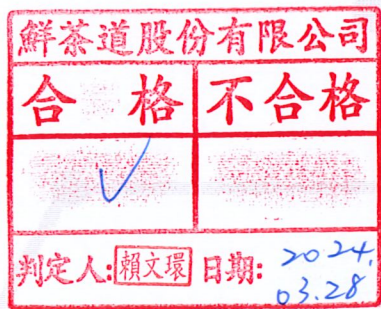 鮮茶道股份有限公司
合格 不合格
✓
判定人:賴文環 日期: 2024.
03.28